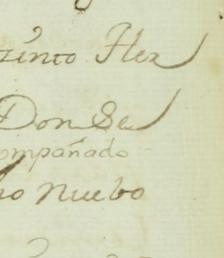 zinto Flex
Don Se
ompañado
ho nuebo